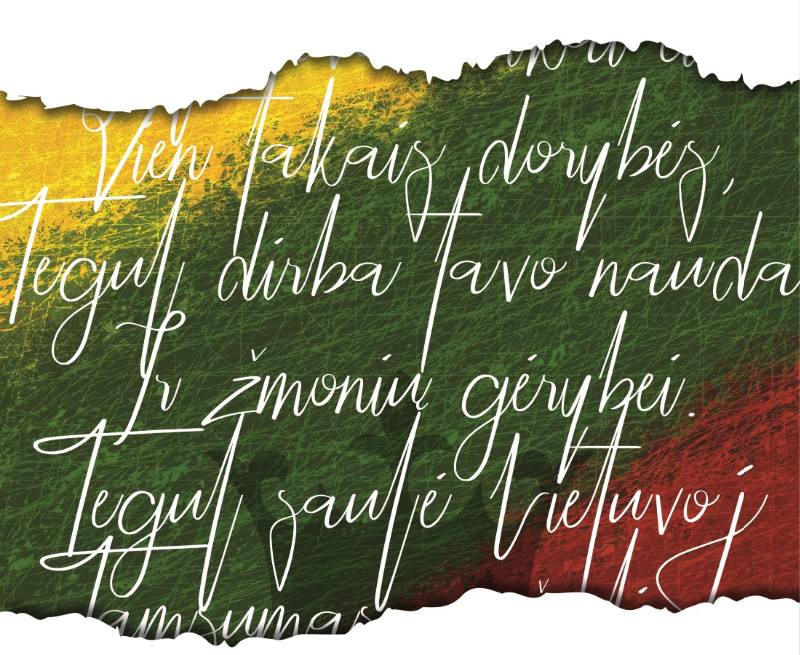 Vien takais dorybės,
Tegul dirba tavo nauda
Ir žmonių gėrybei.
Tegul saulė Lietuvoj
Tamsumas